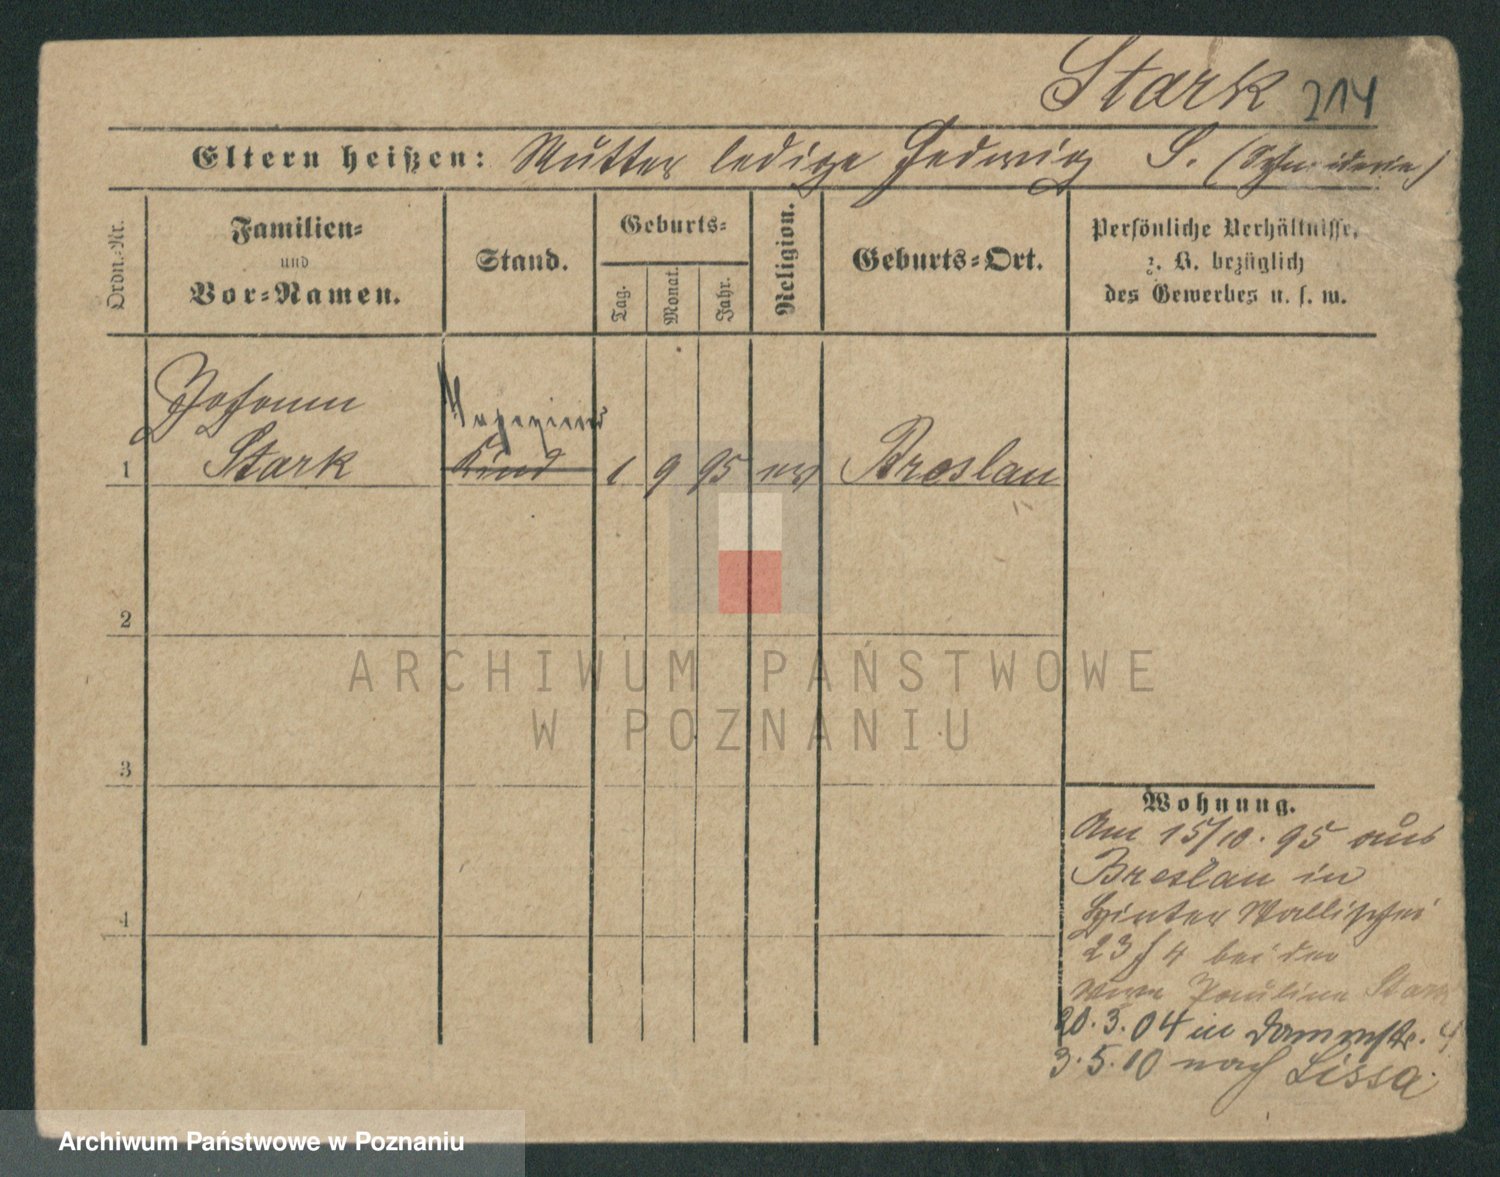 Stark 214
Eltern heißen: Mutter ledige Hedwig S. (Schneiderin)
Ordn.-Nr.
Familien-
und
Vor-Namen.
Stand.
Geburts-
Tag.
Monat.
Jahr.
Religion.
Geburts-Ort.
Persönliche Verhältnisse,
z. B. bezüglich
des Gewerbes u. s. w.
Johann
Stark
1
Kind
1 9 95 ev
Breslau
2
3
4
Wohnung.
Am 15/10. 95 aus
Breslau in
Hinter Wallischei
23 f 4 bei der
Wwe Pauline Stark
20.3.04 in Dammstr. 4
3.5.10 nach Lissa.
ARCHIWUM PAŃSTWOWE
W POZNANIU
Archiwum Państwowe w Poznaniu